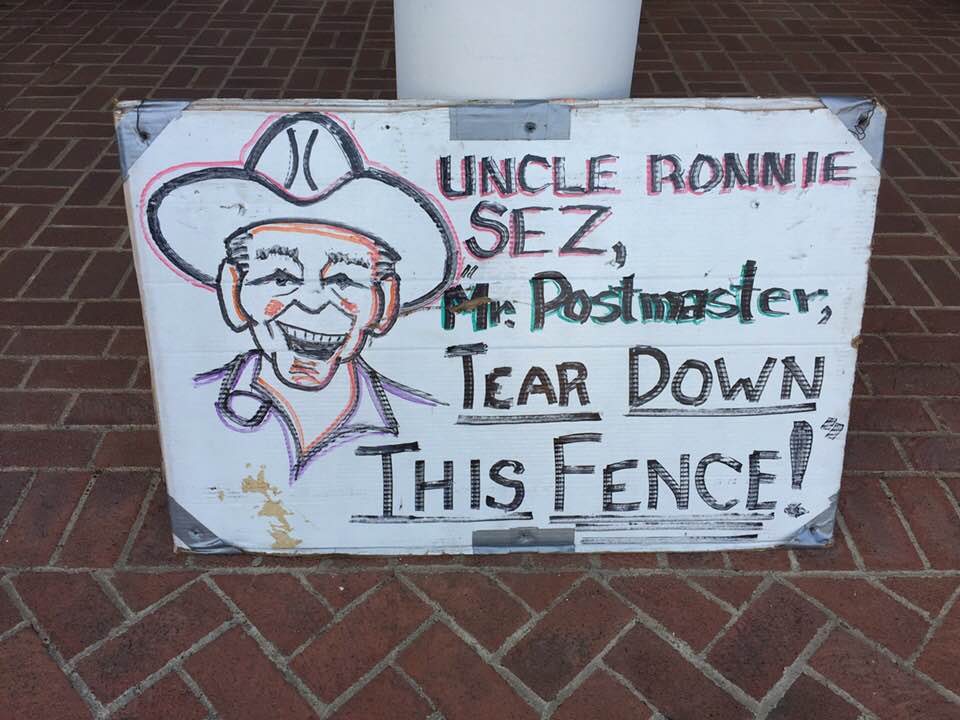 UNCLE RONNIE
SEZ,
"Mr. Postmaster,
TEAR DOWN
THIS FENCE!"